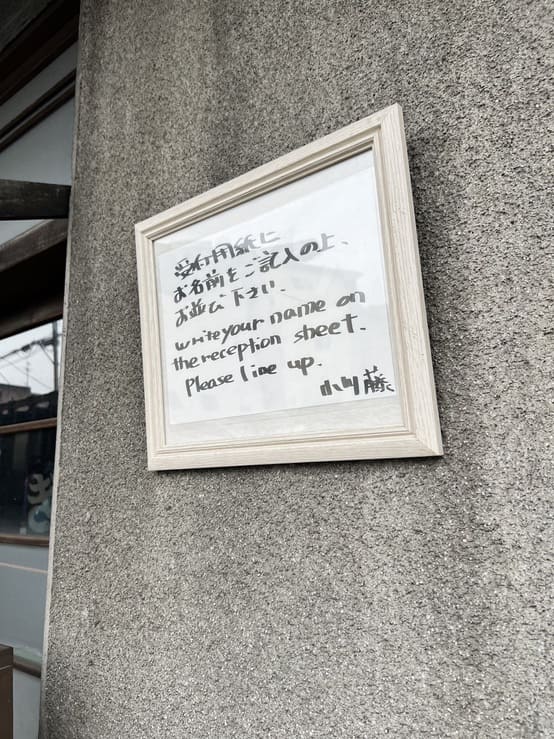 受付用紙に
お名前をご記入の上、
お並び下さい.
write your name on
the reception sheet.
Please line up.
小川藤